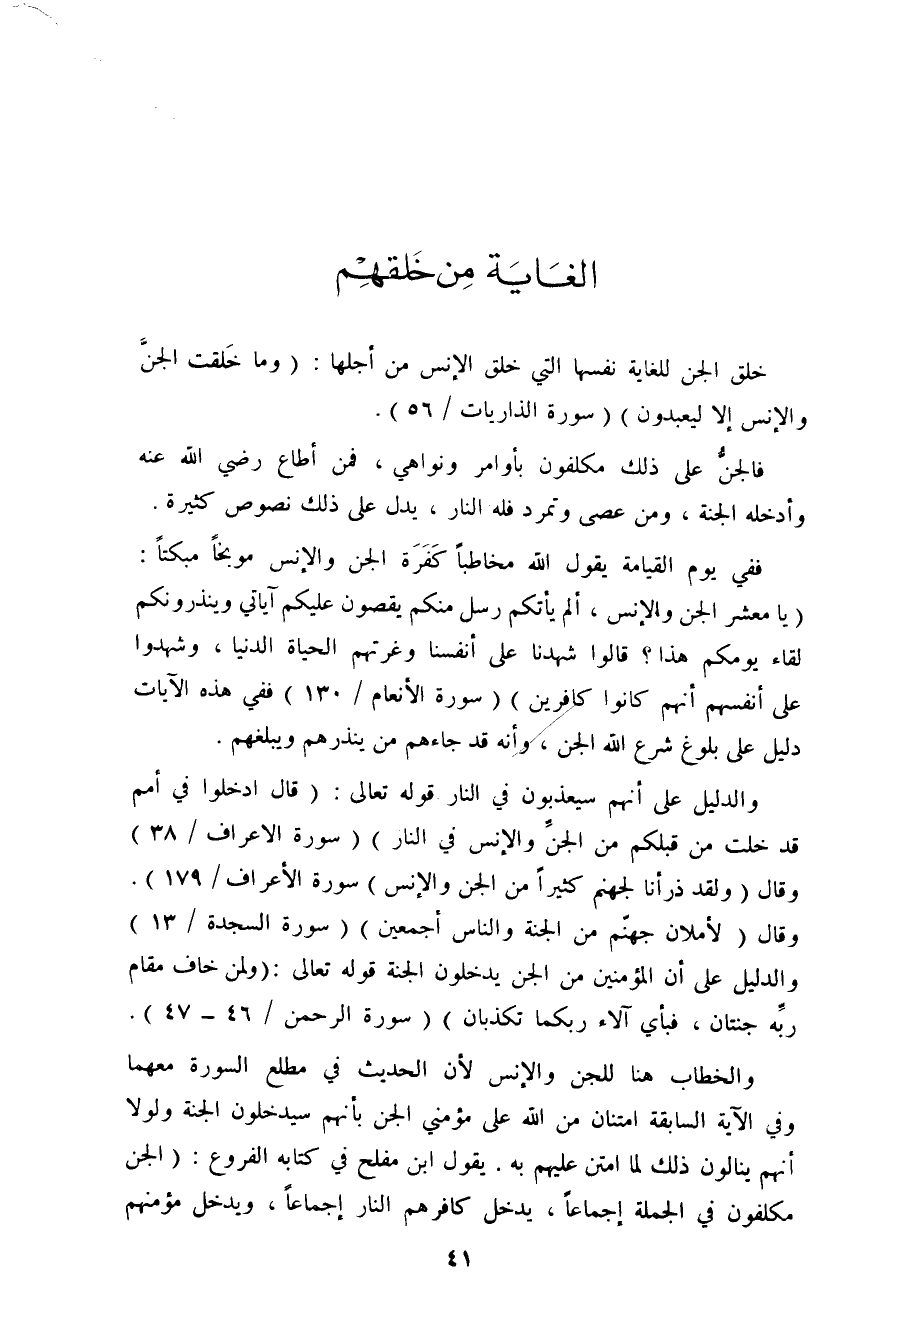 الغَايَة مِن خَلقهِمْ
خلق الجن للغاية نفسها التي خلق الإنس من أجلها : ( وما خَلقت الجنَّ
والإنس إلا ليعبدون ) ( سورة الذاريات / ٥٦ ) .
فالجنُّ على ذلك مكلفون بأوامر ونواهي ، فمن أطاع رضي الله عنه
وأدخله الجنة ، ومن عصى وتمرد فله النار ، يدل على ذلك نصوص كثيرة .
ففي يوم القيامة يقول الله مخاطباً كَفَرَة الجن والإنس موبخاً مبكتاً :
( يا معشر الجن والإنس ، ألم يأتكم رسل منكم يقصون عليكم آياتي وينذرونكم
لقاء يومكم هذا ؟ قالوا شهدنا على أنفسنا وغرتهم الحياة الدنيا ، وشهدوا
على أنفسهم أنهم كانوا كافرين ) ( سورة الأنعام / ١٣٠ ) ففي هذه الآيات
دليل على بلوغ شرع الله الجن ، وأنه قد جاءهم من ينذرهم ويبلغهم .
والدليل على أنهم سيعذبون في النار قوله تعالى : ( قال ادخلوا في أمم
قد خلت من قبلكم من الجنِّ والإنس في النار ) ( سورة الاعراف / ٣٨ )
وقال ( ولقد ذرأنا لجهنم كثيراً من الجن والإنس ) سورة الأعراف / ١٧٩ ) .
وقال ( لأملان جهنّم من الجنة والناس أجمعين ) ( سورة السجدة / ١٣ )
والدليل على أن المؤمنين من الجن يدخلون الجنة قوله تعالى :(ولمن خاف مقام
ربِّه جنتان ، فبأي آلاء ربكما تكذبان ) ( سورة الرحمن / ٤٦ – ٤٧ ) .
والخطاب هنا للجن والإنس لأن الحديث في مطلع السورة معهما
وفي الآية السابقة امتنان من الله على مؤمني الجن بأنهم سيدخلون الجنة ولولا
أنهم ينالون ذلك لما امتن عليهم به . يقول ابن مفلح في كتابه الفروع : ( الجن
مكلفون في الجملة إجماعاً ، يدخل كافرهم النار إجماعاً ، ويدخل مؤمنهم
٤١